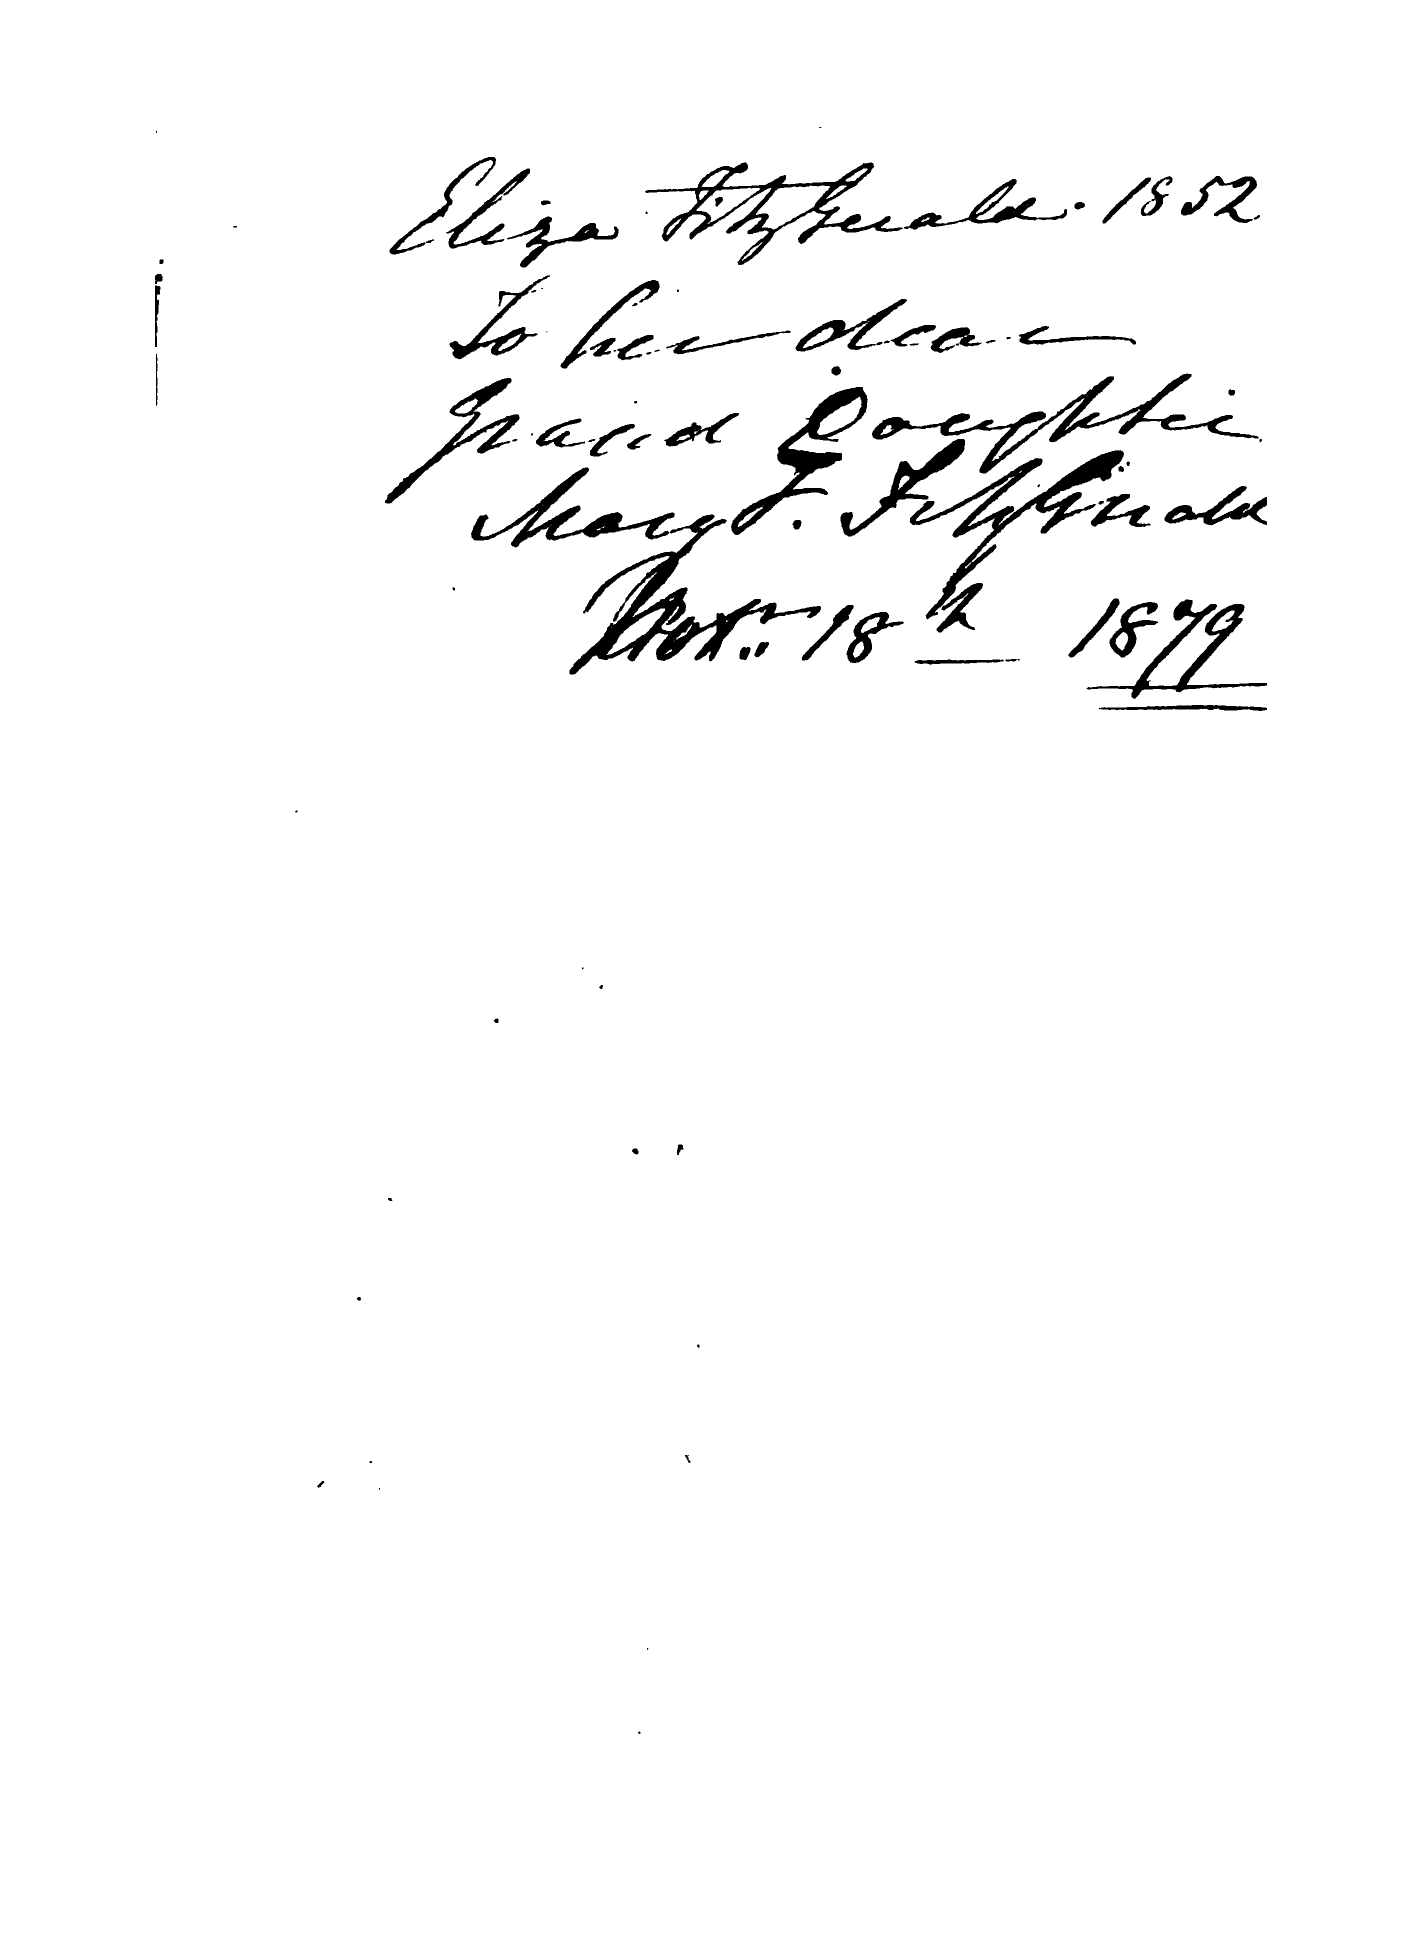 Eliza FitzGerald. 1852
To her dear
Grand Daughter
Mary F. FitzGerald
Novr. 18th 1879